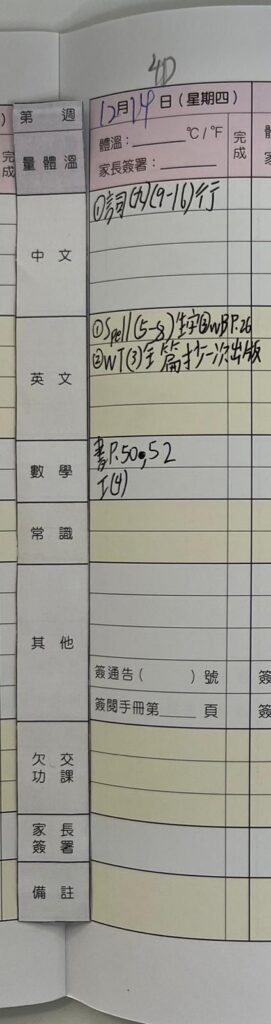 4D
第 週
12月14日(星期四)
量體溫
體溫:______ °C / °F
家長簽署:______
完成
中文
①詞(六)(9-16)行
英文
①Spell(5-8)生字③WB P.26
②WT(3)全篇抄一次出版
數學
書P.50,52
工(4)
常識
其他
簽通告( )號
簽閱手冊第____頁
欠交
功課
家長
簽署
備註